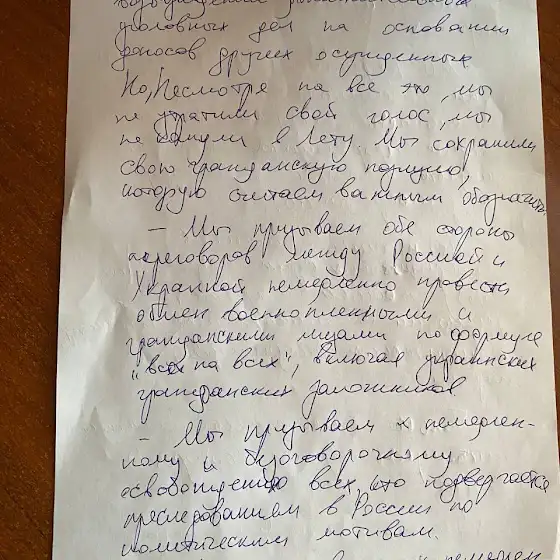 возбуждении дополнительных
уголовных дел на основании
доносов других осужденных
Но, Несмотря на все это, мы
не утратили свой голос, мы
не канули в Лету. Мы сохранили
свою гражданскую позицию,
которую считаем важным обозначить
– Мы призываем обе стороны
переговоров между Россией и
Украиной немедленно провести
обмен военнопленными и
гражданскими лицами по формуле
"всех на всех", включая украинских
гражданских заложников.
– Мы призываем к немедлен-
ному и безоговорочному
освобождению всех, кто подвергается
преследованием в России по
политическим мотивам.